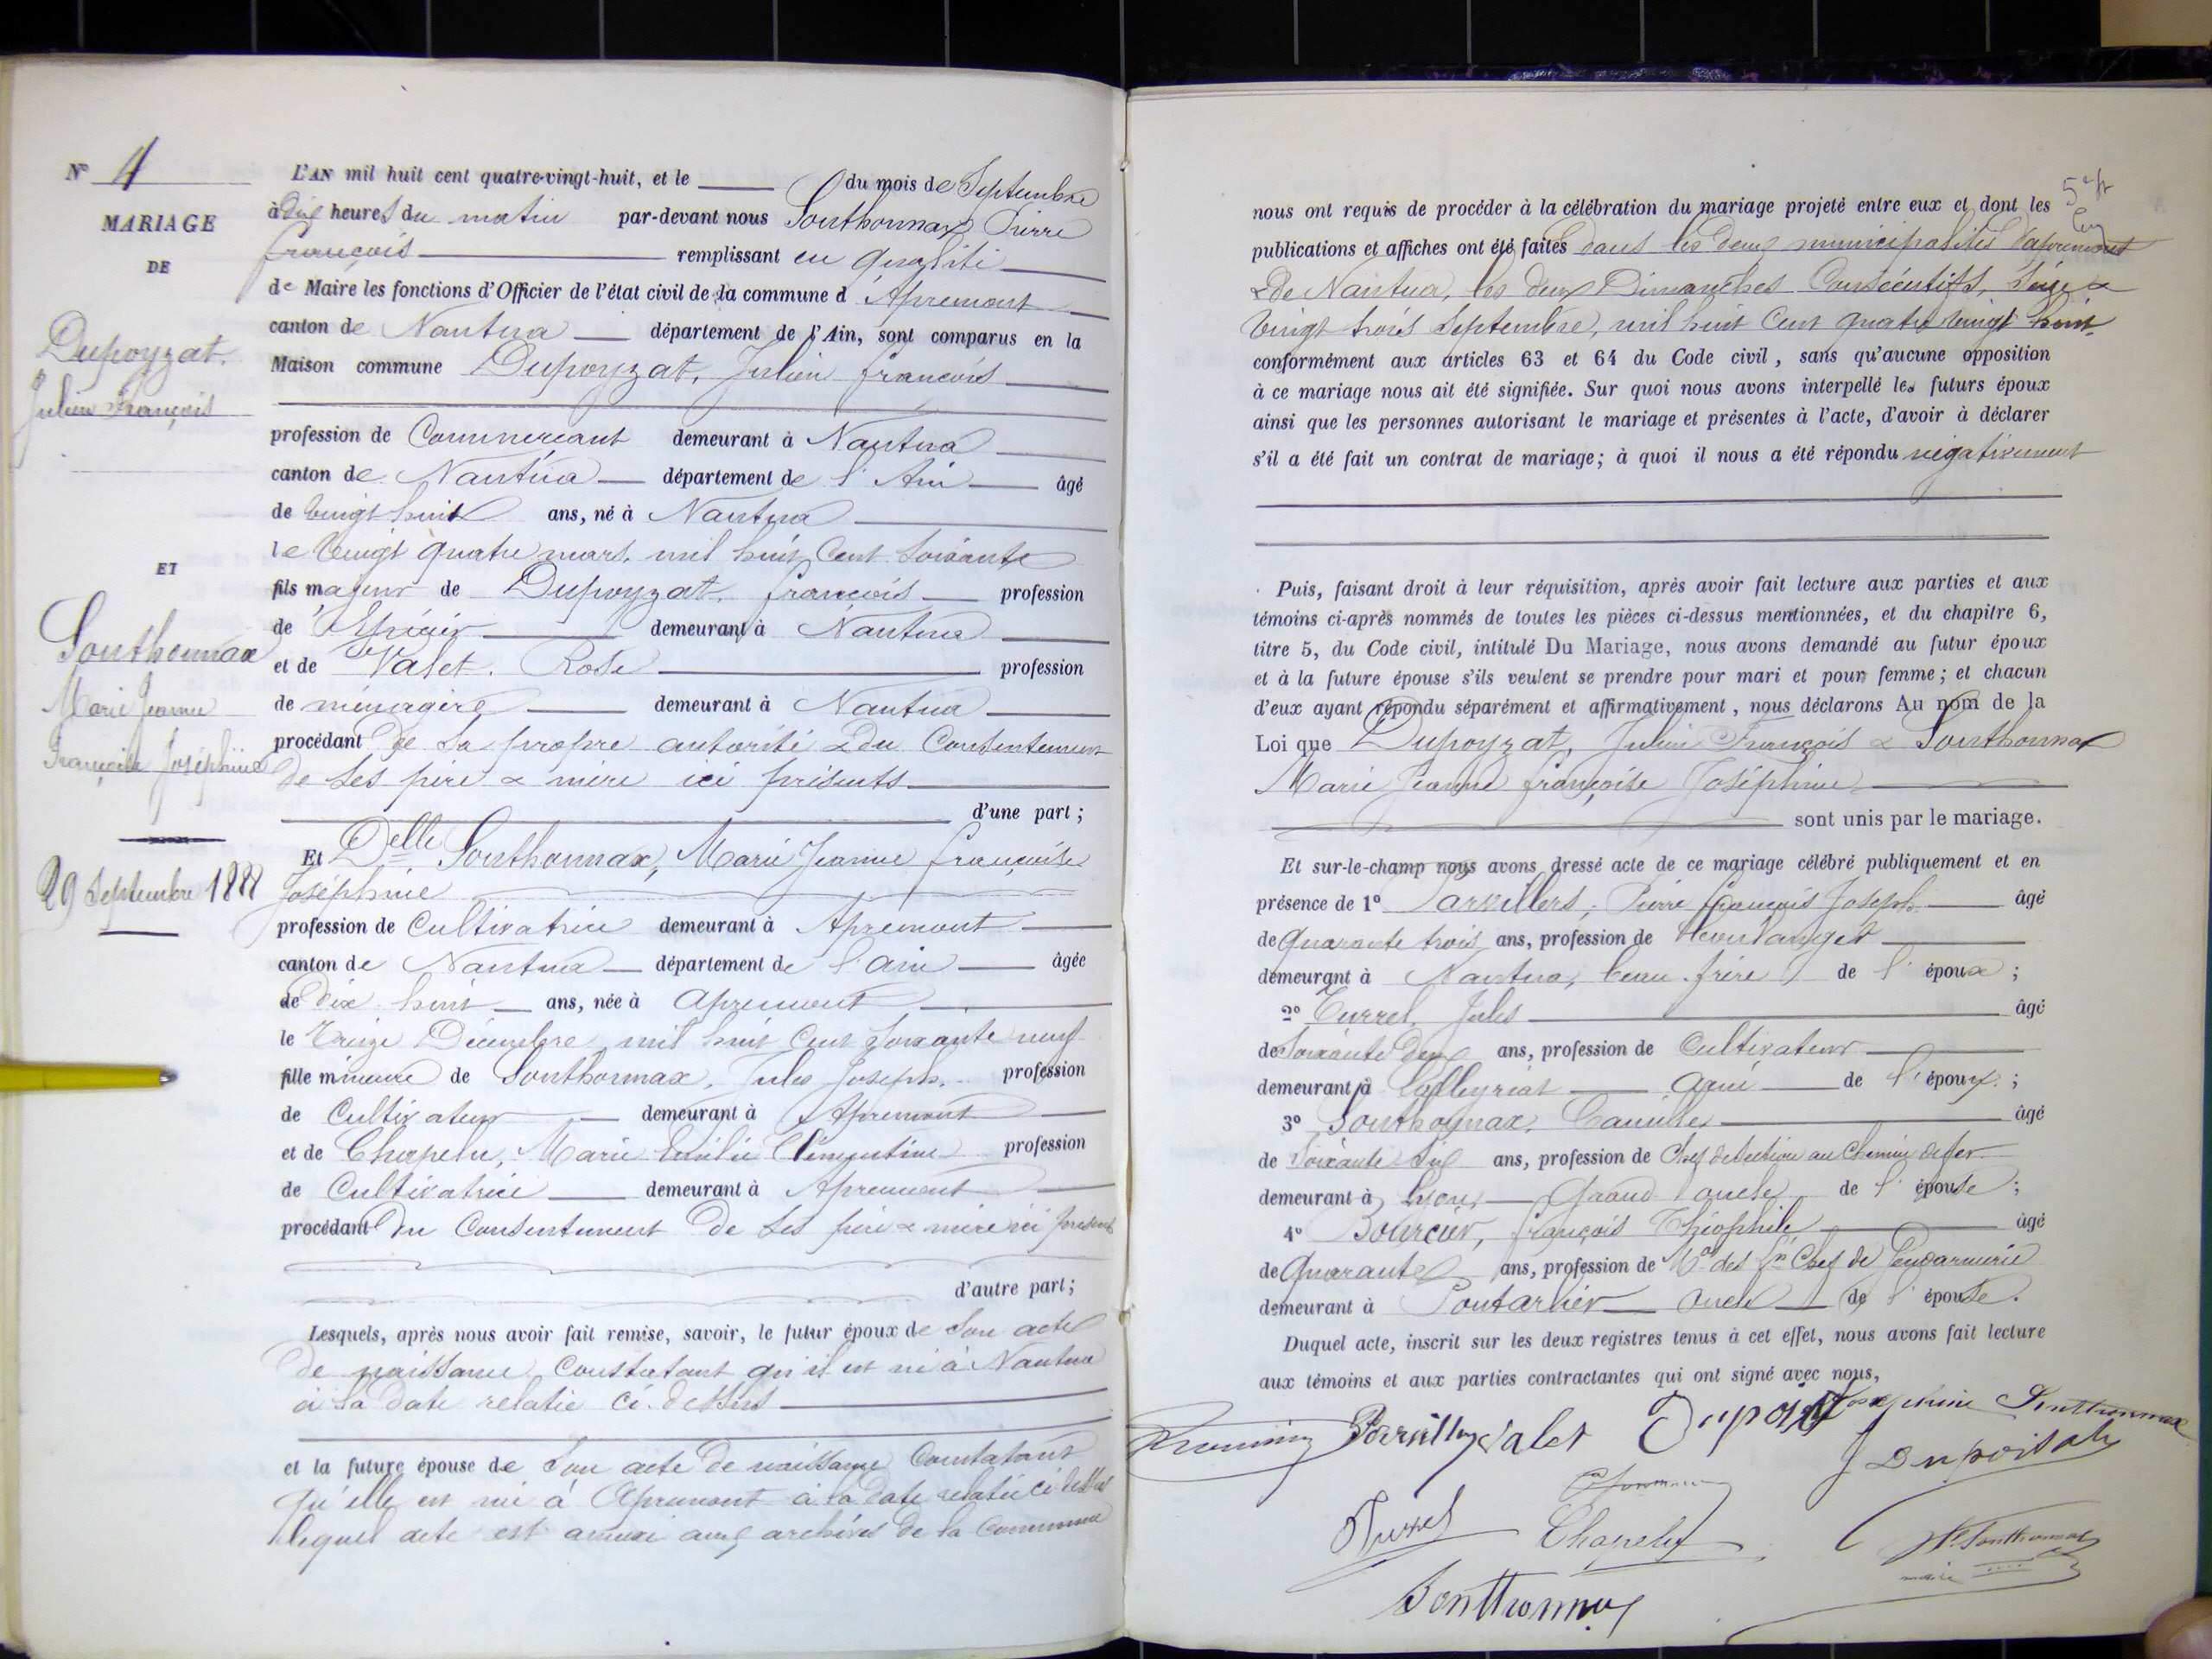 N° 4
MARIAGE
DE
Dupoyzat.
Julien François
ET
Sonthonnax
Marie Jeanne
Françoise Joséphine
29 Septembre 1888
L'AN mil huit cent quatre-vingt-huit, et le du mois de Septembre
à dix heures du matin par-devant nous Sonthonnax Pierre
françois remplissant en qualité
de Maire les fonctions d'Officier de l'état civil de la commune d'Apremont
canton de Nantua département de l'Ain, sont comparus en la
Maison commune Dupoyzat, Julien françois
profession de Commerçant demeurant à Nantua
canton de Nantua département de l'Ain âgé
de vingt huit ans, né à Nantua
le vingt quatre mars, mil huit Cent soixante
fils majeur de Dupoyzat, françois profession
de Epicier demeurant à Nantua
et de Valet. Rose profession
de ménagère demeurant à Nantua
procédant de sa propre autorité & du Consentement
de ses père & mère ici présents
d'une part;
Et Delle Sonthonnax, Marie Jeanne françoise
Joséphine
profession de Cultivatrice demeurant à Apremont
canton de Nantua département de l'ain âgée
de Dix huit ans, née à apremont
le Treize Décembre mil huit Cent soixante neuf
fille mineure de Sonthonnax, Jules Joseph. profession
de Cultivateur demeurant à Apremont
et de Chapelu, Marie Emilie Clémentine profession
de Cultivatrice demeurant à Apremont
procédant Du Consentement de ses père & mère ici présents
d'autre part;
Lesquels, après nous avoir fait remise, savoir, le futur époux de son acte
de naissance Constatant qu'il est né à Nantua
à la date relatée ci-dessus
et la future épouse de son acte de naissance Constatant
qu'elle est née à Apremont à la date relatée ci-dessus
lequel acte est annexé aux archives de la Commune
nous ont requis de procéder à la célébration du mariage projeté entre eux et dont les
publications et affiches ont été faites dans les deux municipalités d'apremont
& de Nantua, les deux Dimanches Consécutifs, seize &
vingt trois Septembre, mil huit Cent quatre vingt huit
conformément aux articles 63 et 64 du Code civil, sans qu'aucune opposition
à ce mariage nous ait été signifiée. Sur quoi nous avons interpellé les futurs époux
ainsi que les personnes autorisant le mariage et présentes à l'acte, d'avoir à déclarer
s'il a été fait un contrat de mariage; à quoi il nous a été répondu négativement
Puis, faisant droit à leur réquisition, après avoir fait lecture aux parties et aux
témoins ci-après nommés de toutes les pièces ci-dessus mentionnées, et du chapitre 6,
titre 5, du Code civil, intitulé Du Mariage, nous avons demandé au futur époux
et à la future épouse s'ils veulent se prendre pour mari et pour femme; et chacun
d'eux ayant répondu séparément et affirmativement, nous déclarons Au nom de la
Loi que Dupoyzat, Julien François & Sonthonnax
Marie Jeanne françoise Joséphine
sont unis par le mariage.
Et sur-le-champ nous avons dressé acte de ce mariage célébré publiquement et en
présence de 1° Parvillers, Pierre françois Joseph âgé
de Quarante trois ans, profession de Boulanger
demeurant à Nantua, beau-frère de l'époux;
2° Turrel, Jules âgé
de Soixante Deux ans, profession de Cultivateur
demeurant à Lalleyriat Ami de l'époux;
3° Sonthonnax, Camille âgé
de Soixante Six ans, profession de Chef de section au Chemin de fer
demeurant à Lyon, Grand oncle de l'épouse;
4° Bourcier, françois Théophile âgé
de Quarante ans, profession de Mal des Lis Chef de Gendarmerie
demeurant à Pontarlier oncle de l'épouse.
Duquel acte, inscrit sur les deux registres tenus à cet effet, nous avons fait lecture
aux témoins et aux parties contractantes qui ont signé avec nous,
Parvillers Valet Joséphine Sonthonnax
Turrel Chapelu
Sonthonnax
Pre Sonthonnax
maire